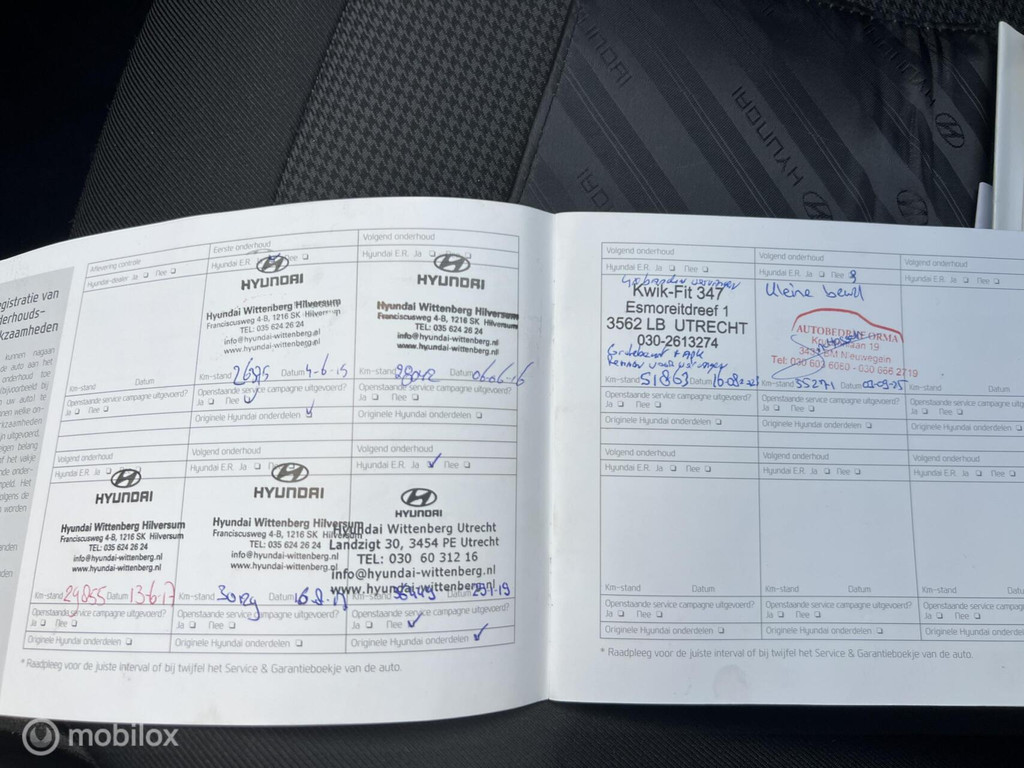 HYUNDAI
HYUNDAI
HYUNDAI
HYUNDAI
HYUNDAI
egistratie van
derhouds-
kzaamheden
Aflevering controle
Hyundai-dealer Ja ❑ Nee ❑
Km-stand Datum
Openstaande service campagne uitgevoerd?
Ja ❑ Nee ❑
Eerste onderhoud
Hyundai E.R. Nee ❑
HYUNDAI
Hyundai Wittenberg Hilversum
Franciscusweg 4-B, 1216 SK Hilversum
TEL: 035 624 26 24
info@hyundai-wittenberg.nl
www.hyundai-wittenberg.nl
Km-stand Datum 4-6-15
Openstaande service campagne uitgevoerd?
Ja ❑ Nee
Originele Hyundai onderdelen
Volgend onderhoud
Hyundai E.R. Ja Nee ❑
HYUNDAI
Hyundai Wittenberg Hilversum
Franciscusweg 4-B, 1216 SK Hilversum
TEL: 035 624 26 24
info@hyundai-wittenberg.nl
www.hyundai-wittenberg.nl
Km-stand Datum 06-06-16
Openstaande service campagne uitgevoerd?
Ja ❑ Nee ❑
Originele Hyundai onderdelen ❑
Volgend onderhoud
Hyundai E.R. Ja ❑
HYUNDAI
Hyundai Wittenberg Hilversum
Franciscusweg 4-B, 1216 SK Hilversum
TEL: 035 624 26 24
info@hyundai-wittenberg.nl
www.hyundai-wittenberg.nl
Km-stand 29855 Datum 13-6-17
Openstaande service campagne uitgevoerd?
Ja ❑ Nee ❑
Originele Hyundai onderdelen ❑
Volgend onderhoud
Hyundai E.R. Ja ❑
HYUNDAI
Hyundai Wittenberg Hilversum
Franciscusweg 4-B, 1216 SK Hilversum
TEL: 035 624 26 24
info@hyundai-wittenberg.nl
www.hyundai-wittenberg.nl
Km-stand Datum
Openstaande service campagne uitgevoerd?
Ja ❑ Nee ❑
Originele Hyundai onderdelen ❑
Volgend onderhoud
Hyundai E.R. Ja ✓ Nee ❑
HYUNDAI
Hyundai Wittenberg Utrecht
Landzigt 30, 3454 PE Utrecht
TEL: 030 60 312 16
info@hyundai-wittenberg.nl
www.hyundai-wittenberg.nl
Km-stand Datum
Openstaande service campagne uitgevoerd?
Ja ❑ Nee ✓
Originele Hyundai onderdelen ✓
* Raadpleeg voor de juiste interval of bij twijfel het Service & Garantieboekje van de auto.
Volgend onderhoud
Hyundai E.R. Ja ❑ Nee ❑
Kwik-Fit 347
Esmoreitdreef 1
3562 LB UTRECHT
030-2613274
Km-stand 51863 Datum
Openstaande service campagne uitgevoerd?
Ja ❑ Nee ❑
Originele Hyundai onderdelen ❑
Volgend onderhoud
Hyundai E.R. Ja ❑ Nee
Kleine beurt
AUTOBEDRIJF ORMA
Nieuwegein
Km-stand 55271 Datum
Openstaande service campagne uitgevoerd?
Ja ❑ Nee ❑
Originele Hyundai onderdelen ❑
Volgend onderhoud
Hyundai E.R. Ja ❑ Nee ❑
Km-stand Datum
Openstaande service campagne
Ja ❑ Nee ❑
Originele Hyundai onderdelen
Volgend onderhoud
Hyundai E.R. Ja ❑ Nee ❑
Km-stand Datum
Openstaande service campagne uitgevoerd?
Ja ❑ Nee ❑
Originele Hyundai onderdelen ❑
Volgend onderhoud
Hyundai E.R. Ja ❑ Nee ❑
Km-stand Datum
Openstaande service campagne uitgevoerd?
Ja ❑ Nee ❑
Originele Hyundai onderdelen ❑
Volgend onderhoud
Hyundai E.R. Ja ❑ Nee ❑
Km-stand Datum
Openstaande service campagne
Ja ❑ Nee ❑
Originele Hyundai onderdelen
* Raadpleeg voor de juiste interval of bij twijfel het Service & Garantieboekje van de auto.
mobilox